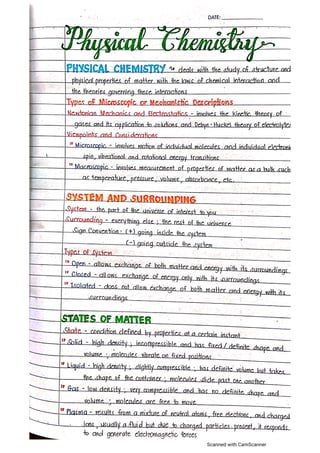 DATE:
Physical Chemistry
PHYSICAL CHEMISTRY deals with the study of structure and
physical properties of matter with the laws of chemical interaction and
the theories governing these interactions
Types of Microscopic or Mechanistic Descriptions
Newtonian Mechanics and Electrostatics - involves the kinetic theory of
gases and its application to solutions and Debye-Huckel theory of electrolytes
Viewpoints and Considerations
Microscopic - involves motion of individual molecules and individual electronic
spin, vibrational and rotational energy transitions
Macroscopic - involves measurement of properties of matter as a bulk such
as temperature, pressure, volume, absorbance, etc.
SYSTEM AND SURROUNDING
System - the part of the universe of interest to you
Surrounding - everything else; the rest of the universe
Sign Convention: (+) going inside the system
(-) going outside the system
Types of System
Open - allows exchange of both matter and energy with its surroundings
Closed - allows exchange of energy only with its surroundings
Isolated - does not allow exchange of both matter and energy with its
surroundings
STATES OF MATTER
State - condition defined by properties at a certain instant
Solid - high density; incompressible and has fixed / definite shape and
volume; molecules vibrate on fixed positions
Liquid - high density; slightly compressible; has definite volume but takes
the shape of the container; molecules slide past one another
Gas - low density; very compressible and has no definite shape and
volume; molecules are free to move
Plasma - results from a mixture of neutral atoms, free electrons, and charged
ions; usually a fluid but due to charged particles present, it responds
to and generate electromagnetic forces
Scanned with CamScanner